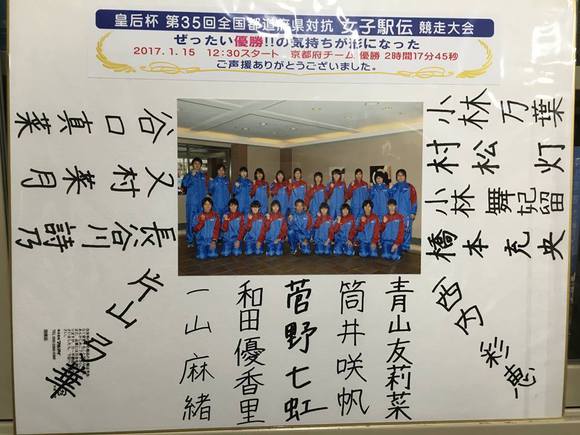 皇后杯 第35回全国都道府県対抗 女子駅伝 競走大会
ぜったい優勝!!の気持ちが形になった
2017.1.15 12:30スタート 京都府チーム 優勝 2時間17分45秒
ご声援ありがとうございました。
小林万葉
村松灯
小林舞妃留
橋本充央
谷内彩恵
谷口真菜
又村菜月
長谷川詩乃
片山弓華
青山友莉菜
筒井咲帆
菅野七虹
和田優香里
一山麻緒